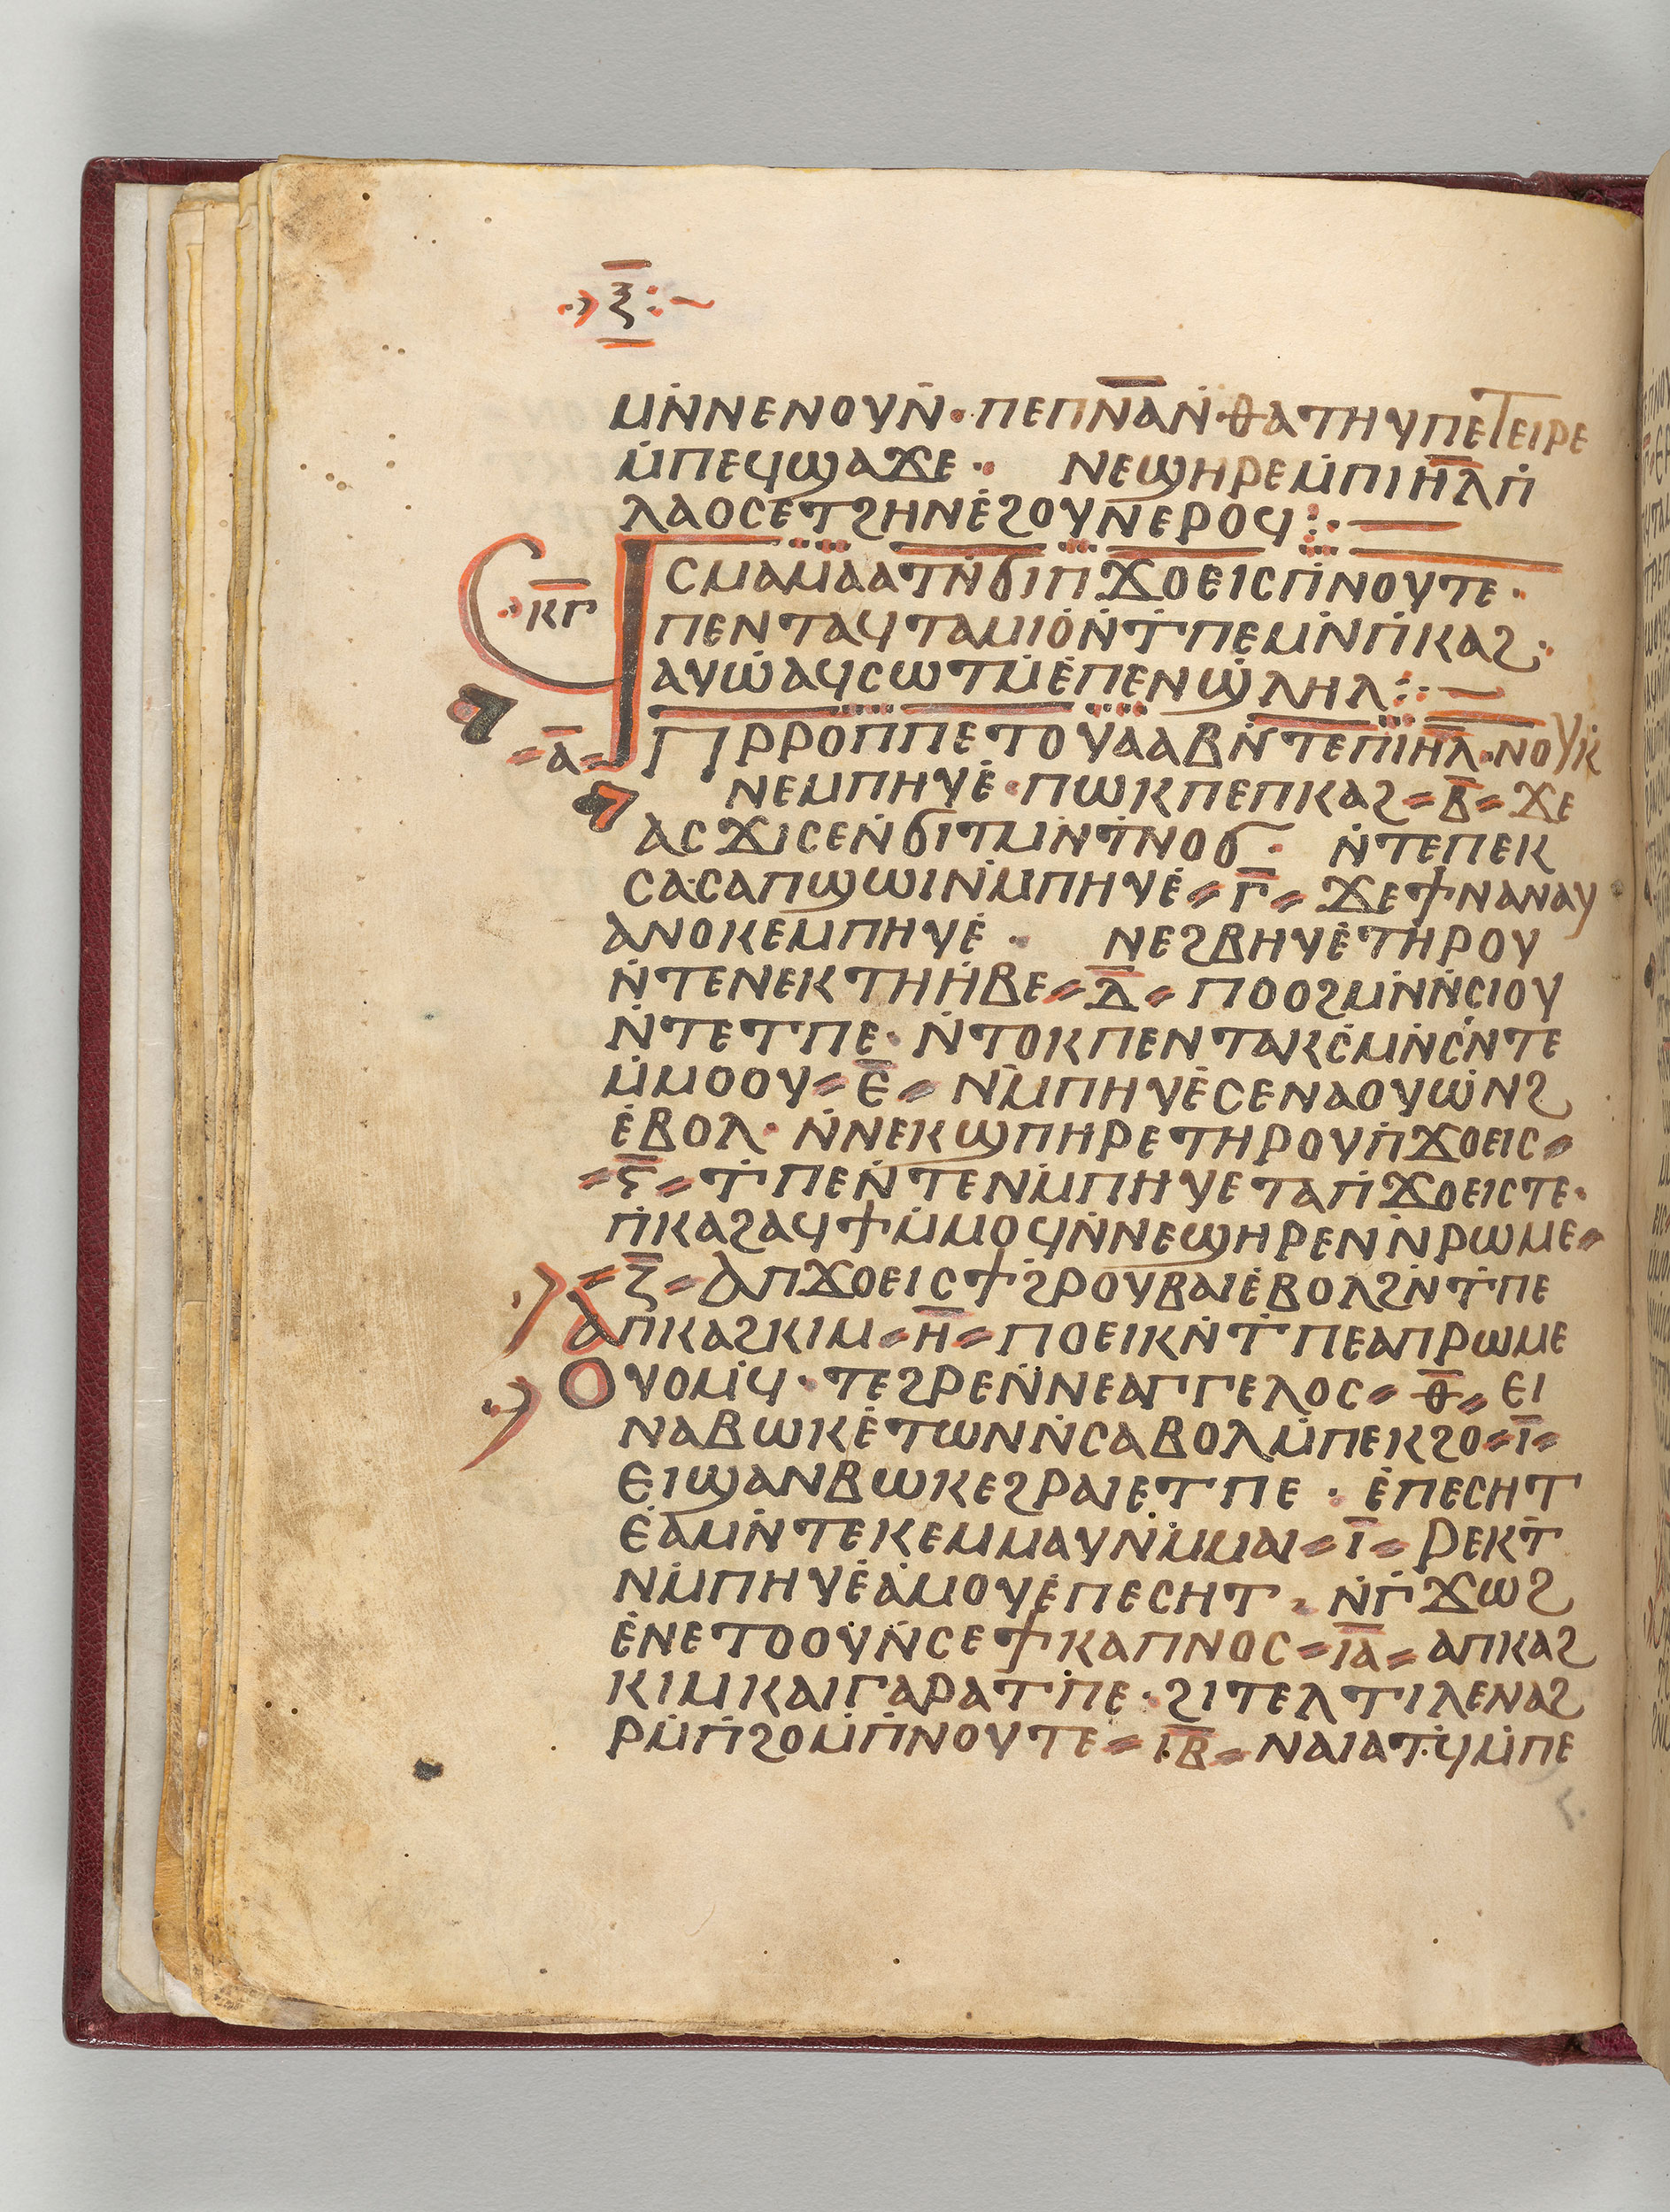 ⲝ̅
ⲙⲛ̇ⲛⲉⲛⲟⲩⲛ̇· ⲡⲉⲡⲛ̅ⲁ̅ⲛ̇ⲑⲁⲧⲏⲩⲡⲉⲧⲉⲓⲣⲉ
ⲙ̇ⲡⲉϥϣⲁϫⲉ· ⲛⲉϣⲏⲣⲉⲙ̇ⲡⲓⲏ̅ⲗⲡ̇
ⲗⲁⲟⲥⲉⲧϩⲏⲛⲉ̇ϩⲟⲩⲛⲉⲣⲟϥ:·—
·ⲕ̅ⲅ̅ ϥⲥⲙⲁⲙⲁⲁⲧⲛ̇ϭⲓⲡϫⲟⲉⲓⲥⲡ̇ⲛⲟⲩⲧⲉ·
ⲡⲉⲛⲧⲁϥⲧⲁⲙⲓⲟ̇ⲛ̇ⲧ̇ⲡⲉⲙⲛ̇ⲡ̇ⲕⲁϩ·
ⲁⲩⲱ̇ⲁϥⲥⲱⲧⲙ̇ⲉ̇ⲡⲉⲛϣ̇ⲗⲏⲗ:·—
⸗ⲁ̅⸗ ⲡⲣⲣⲟⲡⲡⲉⲧⲟⲩⲁⲁⲃⲛ̇ⲧⲉⲡⲓⲏ̅ⲗ̅·ⲛⲟⲩⲕ̇
ⲛⲉⲙⲡⲏⲩⲉ̇·ⲡⲱⲕⲡⲉⲡⲕⲁϩ⸗ⲃ̅⸗ϫⲉ
ⲁⲥϫⲓⲥⲉⲛ̇ϭⲓⲧⲙⲛ̇ⲧ̇ⲛⲟϭ· ⲛ̇ⲧⲉⲡⲉⲕ
ⲥⲁ·ⲥⲁⲡϣⲱⲓⲛ̇ⲙⲡⲏⲩⲉ̇⸗ⲅ̅⸗ϫⲉϯⲛⲁⲛⲁⲩ
ⲁⲛⲟⲕⲉⲙⲡⲏⲩⲉ̇· ⲛⲉϩⲃⲏⲩⲉ̇ⲧⲏⲣⲟⲩ
ⲛ̇ⲧⲉⲛⲉⲕⲧⲏⲏ̇ⲃⲉ⸗ⲇ̅⸗ⲡⲟⲟϩⲙⲛ̇ⲛ̇ⲥⲓⲟⲩ
ⲛ̇ⲧⲉⲧⲡⲉ·ⲛ̇ⲧⲟⲕⲡⲉⲛⲧⲁⲕⲥ̇ⲙⲛ̇ⲥ̇ⲛⲧⲉ
ⲙ̇ⲙⲟⲟⲩ⸗ⲉ̅⸗ⲛ̇ⲙⲡⲏⲩⲉ̇ⲥⲉⲛⲁⲟⲩⲱ̇ⲛϩ
ⲉ̇ⲃⲟⲗ·ⲛ̇ⲛⲉⲕϣⲡⲏⲣⲉⲧⲏⲣⲟⲩⲡ̇ϫⲟⲉⲓⲥ⸗
⸗ⲋ̅⸗ⲧ̇ⲡⲉⲛ̇ⲧⲉⲛⲙ̇ⲡⲏⲩⲉⲧⲁⲡ̇ϫⲟⲉⲓⲥⲧⲉ·
ⲡ̇ⲕⲁϩⲁϥϯⲙ̇ⲙⲟϥⲛ̇ⲛⲉϣⲏⲣⲉⲛⲛ̇ⲣⲱⲙⲉ⸗
⸗ⲍ̅⸗ⲁⲡϫⲟⲉⲓⲥϯϩⲣⲟⲩⲃⲁⲓⲉ̇ⲃⲟⲗϩⲛ̇ⲧ̇ⲡⲉ
ⲁⲡⲕⲁϩⲕⲓⲙ⸗ⲏ̅⸗ⲡⲟⲉⲓⲕⲛ̇ⲧ̇ⲡⲉⲁⲡⲣⲱⲙⲉ
ⲟⲩⲟⲙ̇ϥ·ⲧⲉϩⲣⲉⲛ̇ⲛⲉⲁⲅⲅⲉⲗⲟⲥ⸗ⲑ̅⸗ⲉⲓ
ⲛⲁⲃⲱⲕⲉ̇ⲧⲱⲛⲛ̇ⲥⲁⲃⲟⲗⲙ̇ⲡⲉⲕϩⲟ⸗ⲓ̅⸗
ⲉⲓϣⲁⲛⲃⲱⲕⲉϩⲣⲁⲓⲉⲧⲡⲉ· ⲉ̇ⲡⲉⲥⲏⲧ
ⲉ̇ⲁⲙⲛ̇ⲧⲉⲕⲉⲙⲙⲁⲩⲛ̇ⲙ̇ⲙⲁⲓ⸗ⲓ̅⸗ⲣⲉⲕⲧ̇
ⲛⲙ̇ⲡⲏⲩⲉ̇ⲁ̇ⲙⲟⲩⲉ̇ⲡⲉⲥⲏⲧ·ⲛ̇ⲅ̇ϫⲱϩ
ⲉ̇ⲛⲉⲧⲟⲟⲩⲛ̇ⲥⲉϯⲕⲁⲡⲛⲟⲥ⸗ⲓ̅ⲁ̅⸗ⲁⲡⲕⲁϩ
ⲕⲓⲙⲕⲁⲓⲅⲁⲣⲁⲧⲡⲉ·ϩⲓⲧⲉⲗϯⲗⲉⲛⲁϩ
ⲣⲙ̇ⲡ̇ϩⲟⲙ̇ⲡ̇ⲛⲟⲩⲧⲉ⸗ⲓ̅ⲃ̅⸗ⲛⲁⲓⲁⲧϥ̇ⲙ̇ⲡⲉ